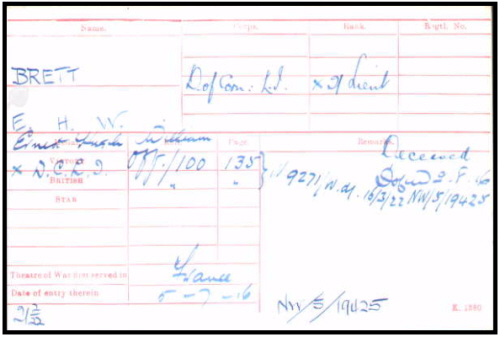 Name. Corps. Rank. Regtl. No.
BRETT D of Corn: L.I. x 2/Lieut
E. H. W.
Ernest Hugh William
Page. Remarks.
Deceased
Victory Off/100 135
x D.C.L.I.
British " "
Star
16/3/22 NW/5/19425
Theatre of War first served in France
Date of entry therein 5-7-16
NW/5/19425
K. 1380